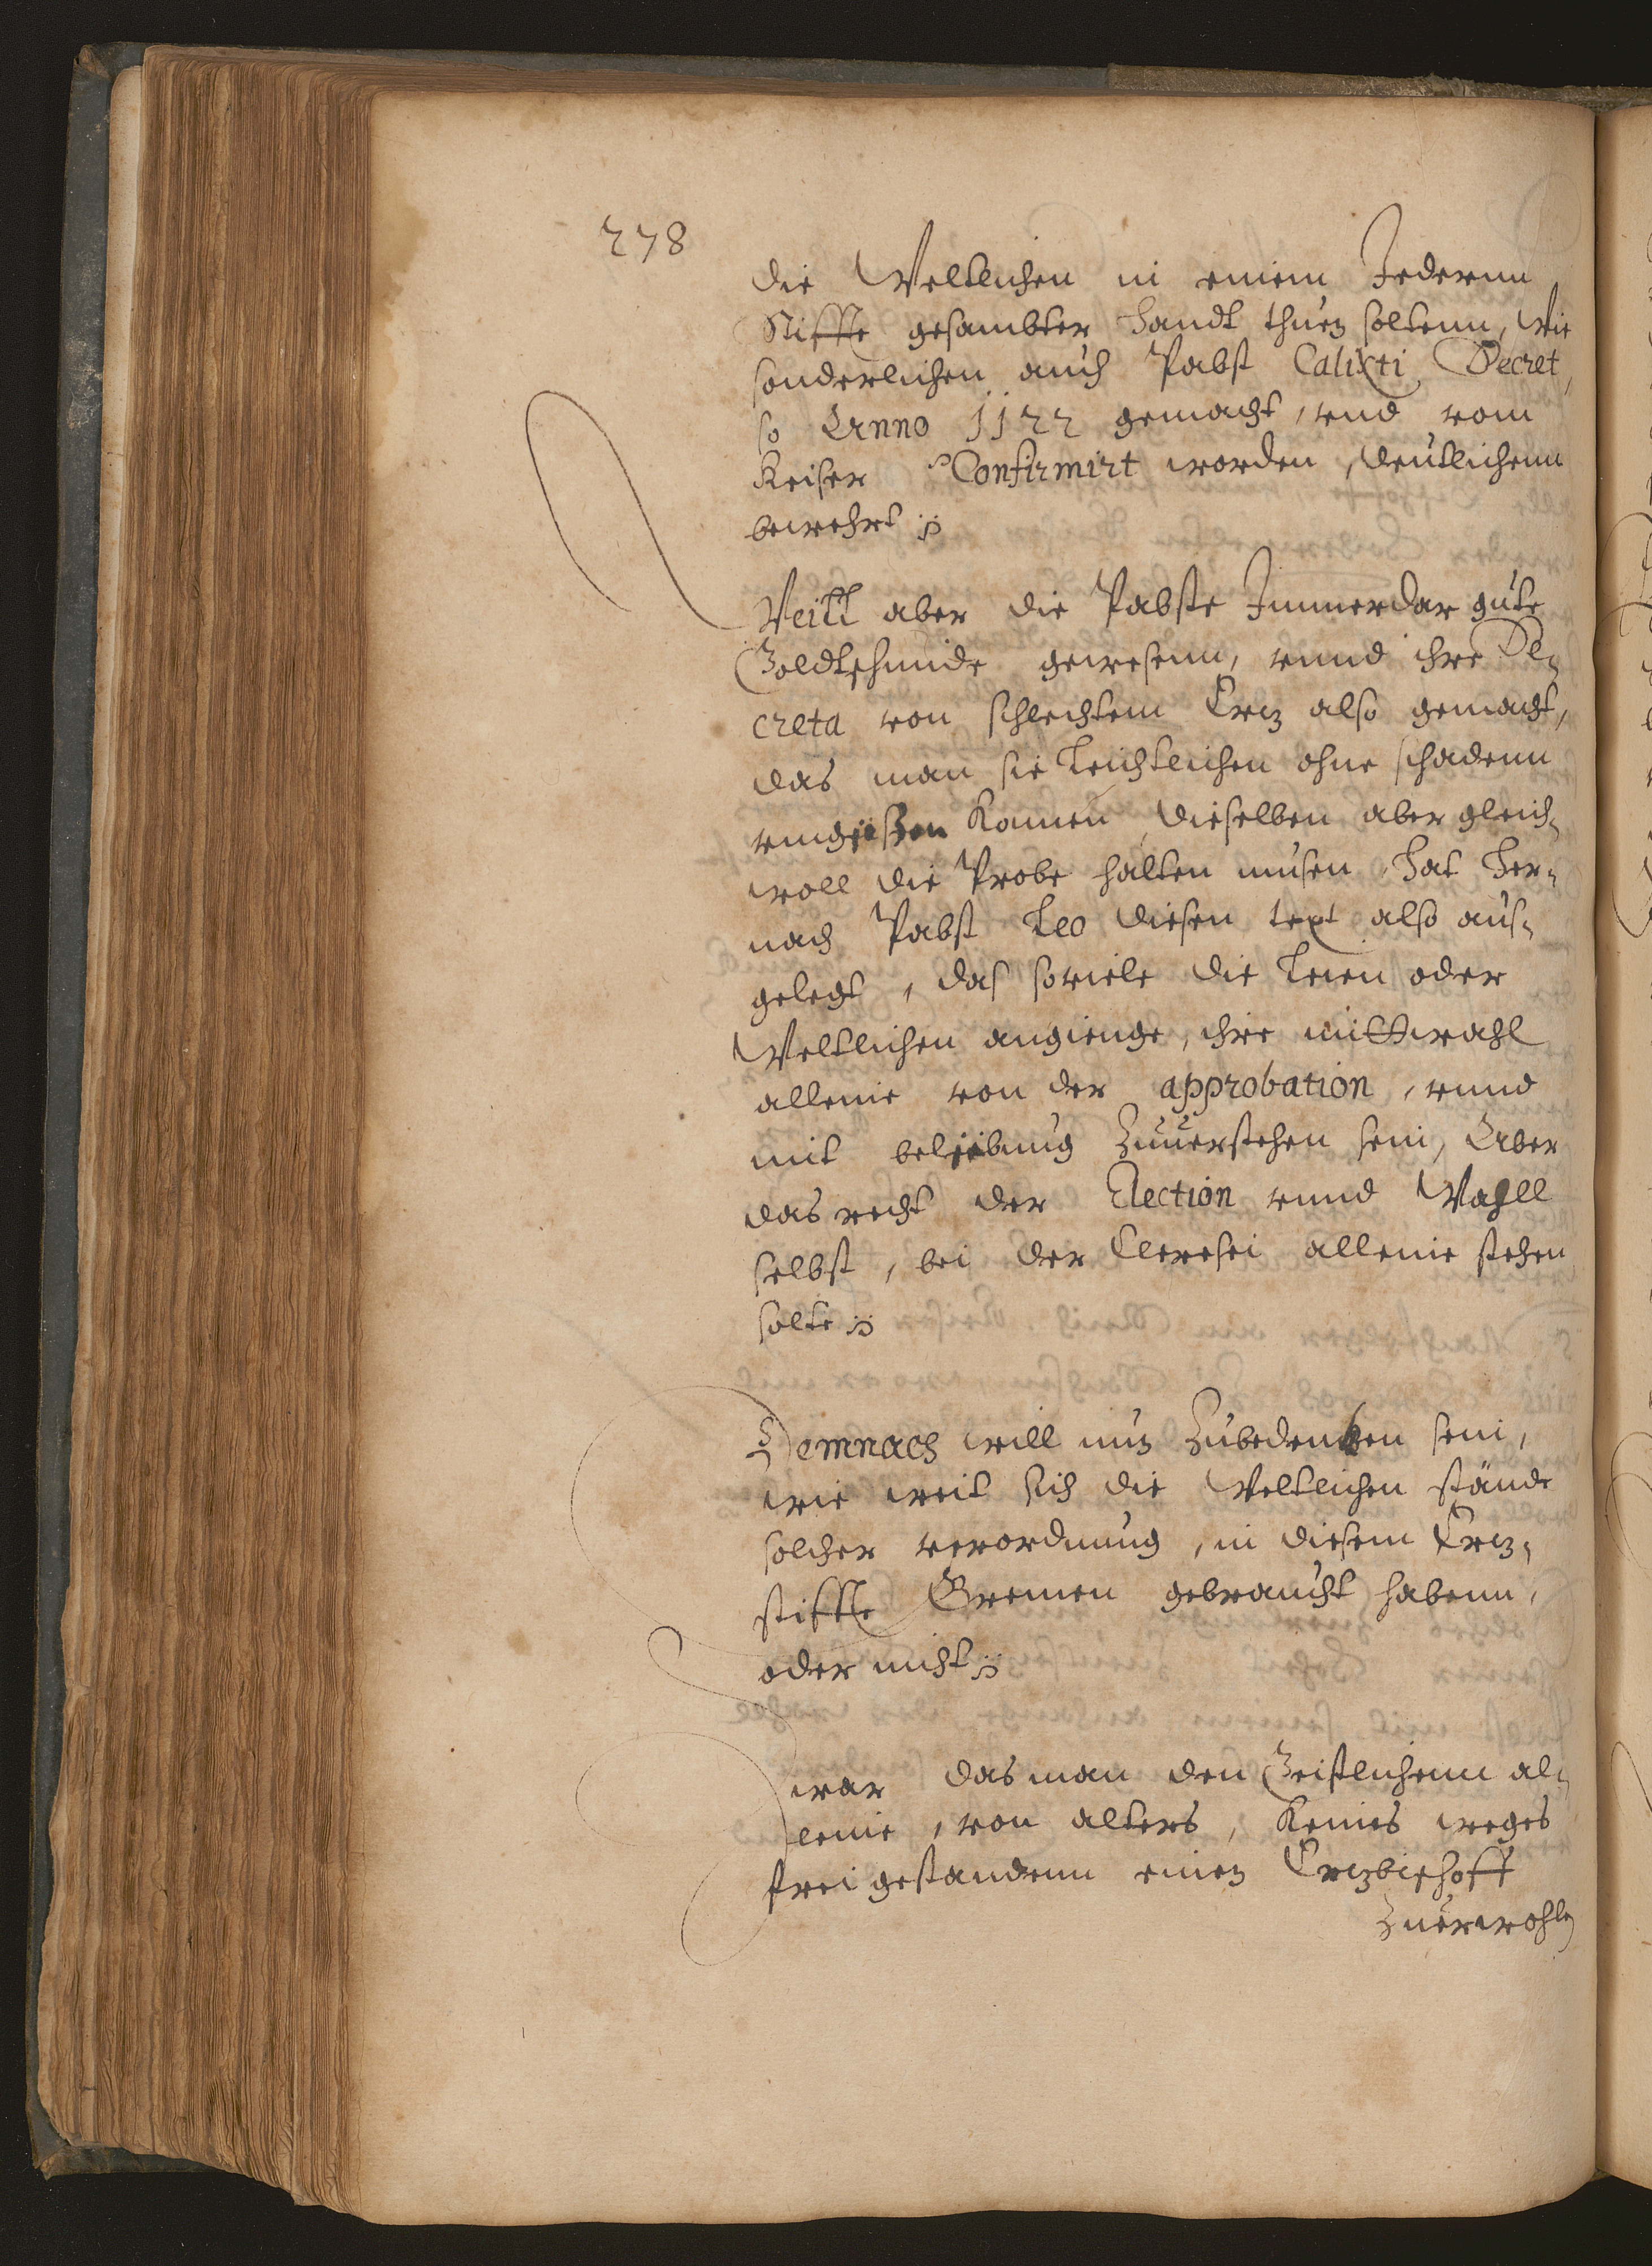 278
die Weltlichen in einem Jedernn
Stiffte gesambter handt thuen soltenn, Wie
sonderlichen auch Pabst Calixti Decret,
so Anno 1122 gemacht, vnd vom
Keiser Confirmirt worden, deutlichenn
bewehrt
Weill aber die Pabste Jmmerdar gute
Goldtschmide gewesenn, vnnd ihre De-
creta von schlechtem Ertz also gemacht,
das man sie leichtlichen ohne schadenn
vmgießen konnen, dieselben aber gleich-
woll die Probe halten musen, hat her-
nach Pabst Leo diesen text also aus-
gelegt, das soviele die Leien oder
Weltlichen angienge, ihre mittwahl
alleine von der approbation, vnnd
mit beliebung Zuuerstehen sein, Aber
das recht der Election vnnd Wahll
selbst, bei der Cleresei alleine stehen
solte
Demnach will nun Zubedenken sein,
wie weit sich die Weltlichen stände
solcher verordnung, in diesem Ertz-
stiffte Bremen gebraucht habenn,
oder nicht
Zwar das man den Geistlichenn al-
leine, von alters, keines weges
frei gestandenn einen Ertzbischoff
Zuerwohln